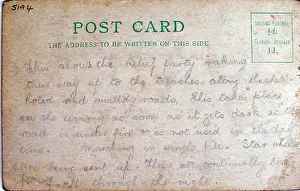 5194
POST CARD
THE ADDRESS TO BE WRITTEN ON THIS SIDE
INLAND POSTAGE
½d.
FOREIGN POSTAGE
1d.
This shows the relief party making
their way up to the trenches along
holed and muddy roads, this takes place
in the evening as soon as it gets dark, as the
road is under fire & is not used in the day
time. Marching in single file. Star shells
are being sent up. These are continually being
through the night